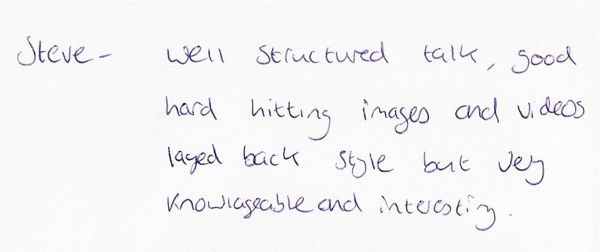 Steve- Well structured talk, good
hard hitting images and videos
layed back style but very
knowlageable and interesting.